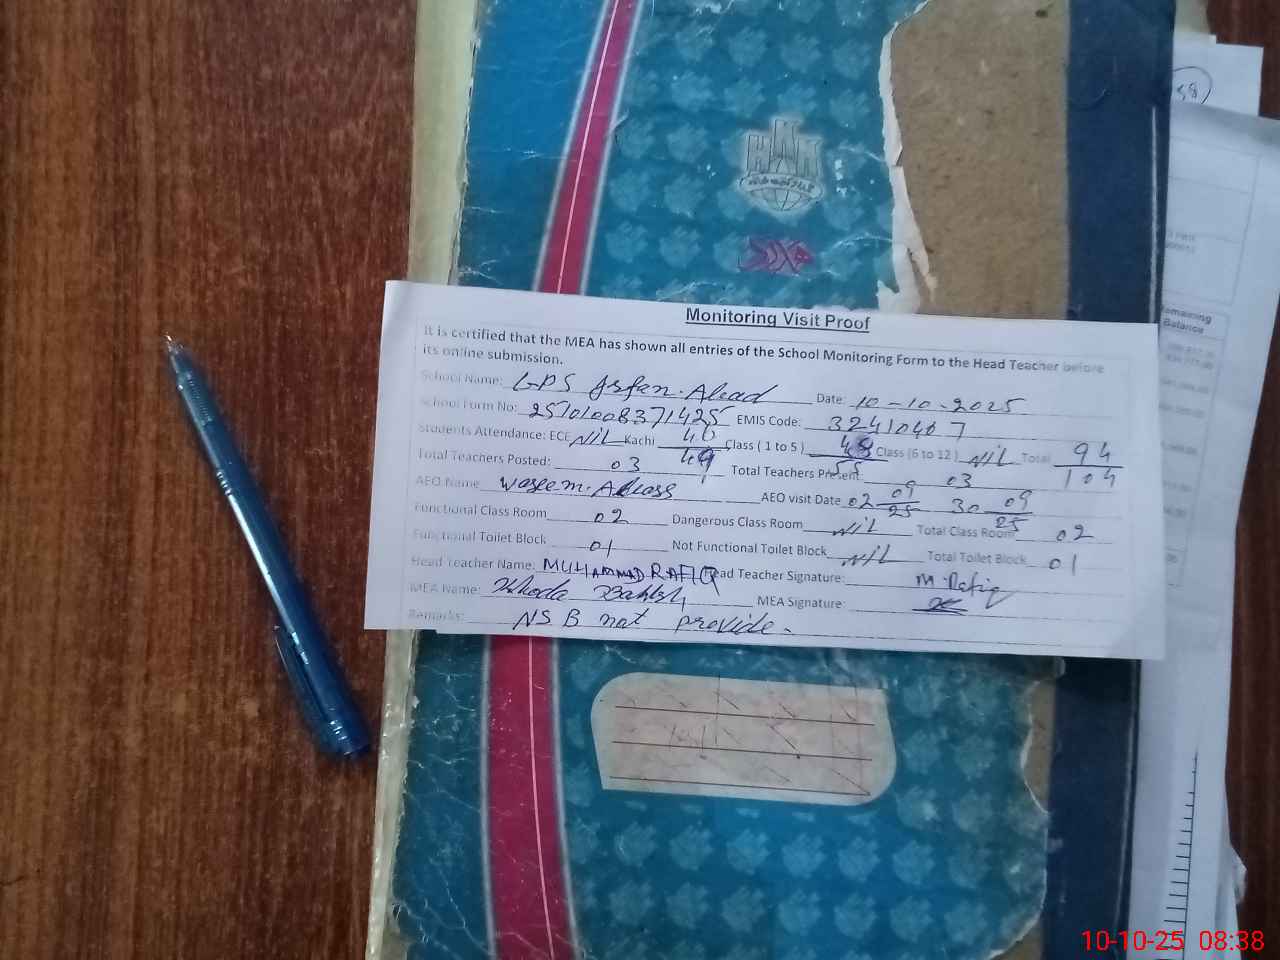 Monitoring Visit Proof
It is certified that the MEA has shown all entries of the School Monitoring Form to the Head Teacher before
its online submission.
School Name: GPS Irfan Abad Date: 10-10-2025
School Form No: 25101008371425 EMIS Code: 32410407
Students Attendance: ECE Nil Kachi 46/49 Class (1 to 5) 48/55 Class (6 to 12) Nil Total 94/104
Total Teachers Posted: 03 Total Teachers Present: 03
AEO Name Waseem Abbass AEO visit Date 02 09/25 30 09/25
Functional Class Room 02 Dangerous Class Room Nil Total Class Room 02
Functional Toilet Block 01 Not Functional Toilet Block Nil Total Toilet Block 01
Head Teacher Name: MUHAMMAD RAFIQ Head Teacher Signature: M. Rafiq
MEA Name: Khoda Bakhsh MEA Signature:
Remarks: NSB not provide.
58
Remaining
Balance
10-10-25 08:38